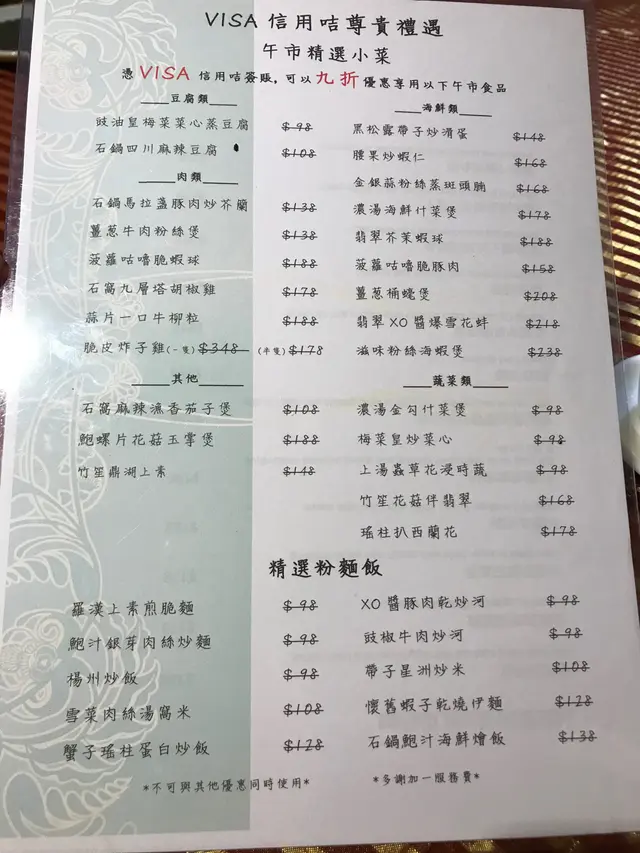 VISA 信用咭尊貴禮遇
午市精選小菜
憑 VISA 信用咭簽賬，可以 九折 優惠享用以下午市食品
豆腐類
豉油皇梅菜菜心蒸豆腐 $98
石鍋四川麻辣豆腐 $108
肉類
石鍋馬拉盞豚肉炒芥蘭 $138
薑葱牛肉粉絲煲 $138
菠蘿咕嚕脆蝦球 $188
石窩九層塔胡椒雞 $178
蒜片一口牛柳粒 $188
脆皮炸子雞(一隻) $348 (半隻) $178
其他
石窩麻辣漁香茄子煲 $108
鮑螺片花菇玉掌煲 $188
竹笙鼎湖上素 $148
海鮮類
黑松露帶子炒滑蛋 $148
腰果炒蝦仁 $168
金銀蒜粉絲蒸斑頭腩 $168
濃湯海鮮什菜煲 $178
翡翠芥茉蝦球 $188
菠蘿咕嚕脆豚肉 $158
薑葱桶蠔煲 $208
翡翠XO醬爆雪花蚌 $218
滋味粉絲海蝦煲 $238
蔬菜類
濃湯金勾什菜煲 $98
梅菜皇炒菜心 $98
上湯蟲草花浸時蔬 $98
竹笙花菇伴翡翠 $168
瑤柱扒西蘭花 $178
精選粉麵飯
羅漢上素煎脆麵 $98
鮑汁銀芽肉絲炒麵 $98
楊州炒飯 $98
雪菜肉絲湯窩米 $108
蟹子瑤柱蛋白炒飯 $128
XO醬豚肉乾炒河 $98
豉椒牛肉炒河 $98
帶子星洲炒米 $108
懷舊蝦子乾燒伊麵 $128
石鍋鮑汁海鮮燴飯 $138
*不可與其他優惠同時使用*
*多謝加一服務費*